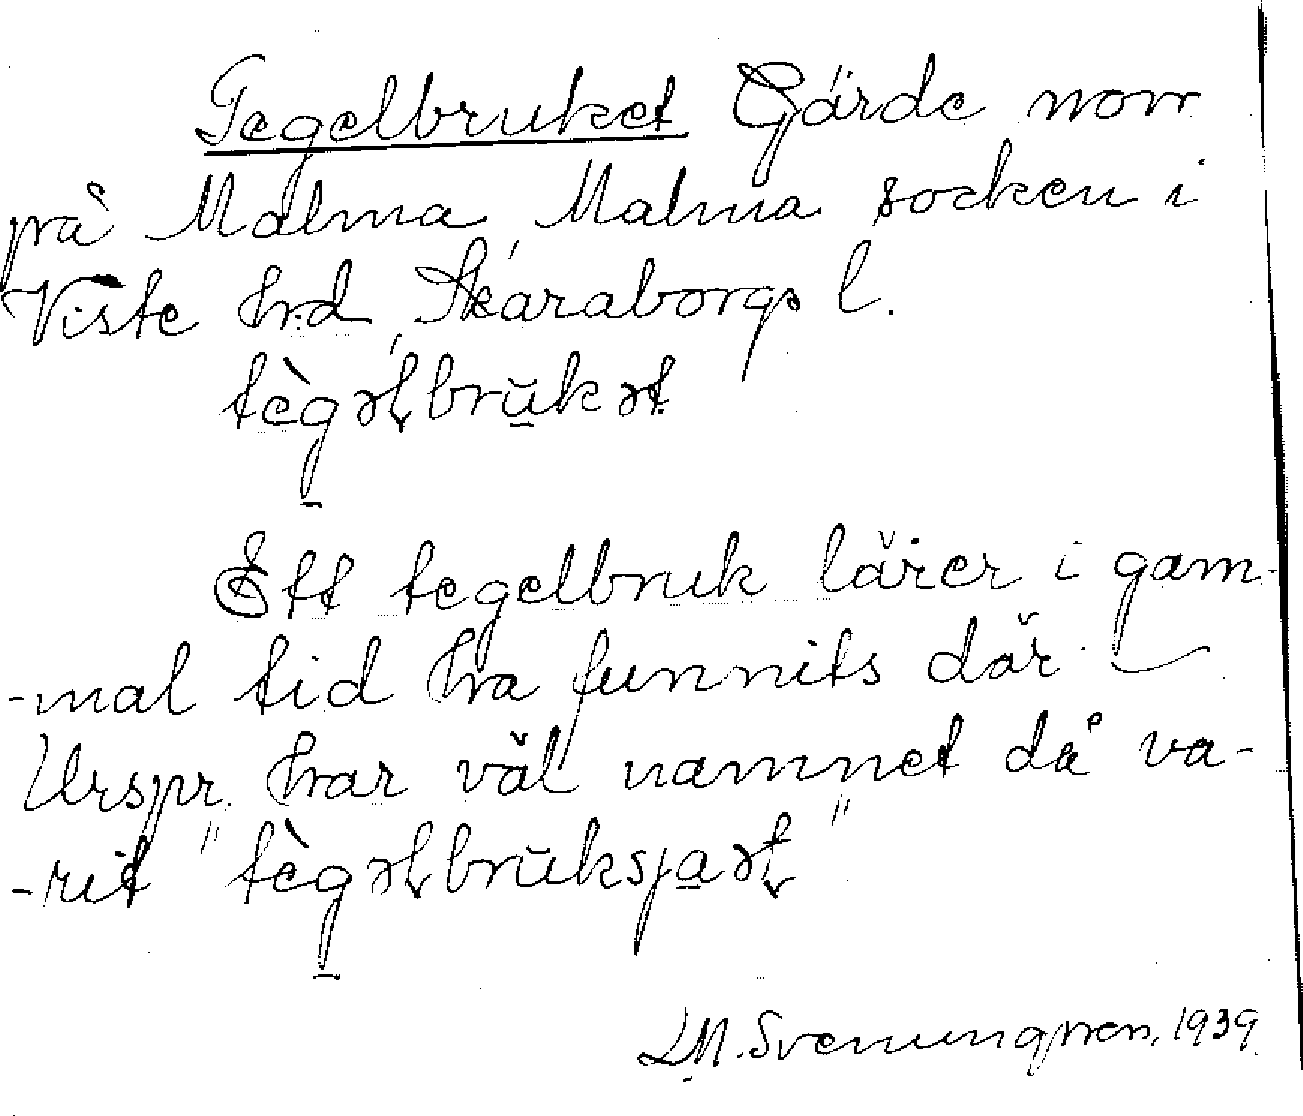 Tegelbruket Gärde norr
på Malma Malma socken i
Viste hrd, Skaraborgs l.
tègəɫbrūkət
Ett tegelbruk lärer i gam-
-mal tid ha funnits där.
Urspr. har väl namnet då va-
-rit "tègəɫbrūksjaət"
L.M. Svenungsson, 1939.